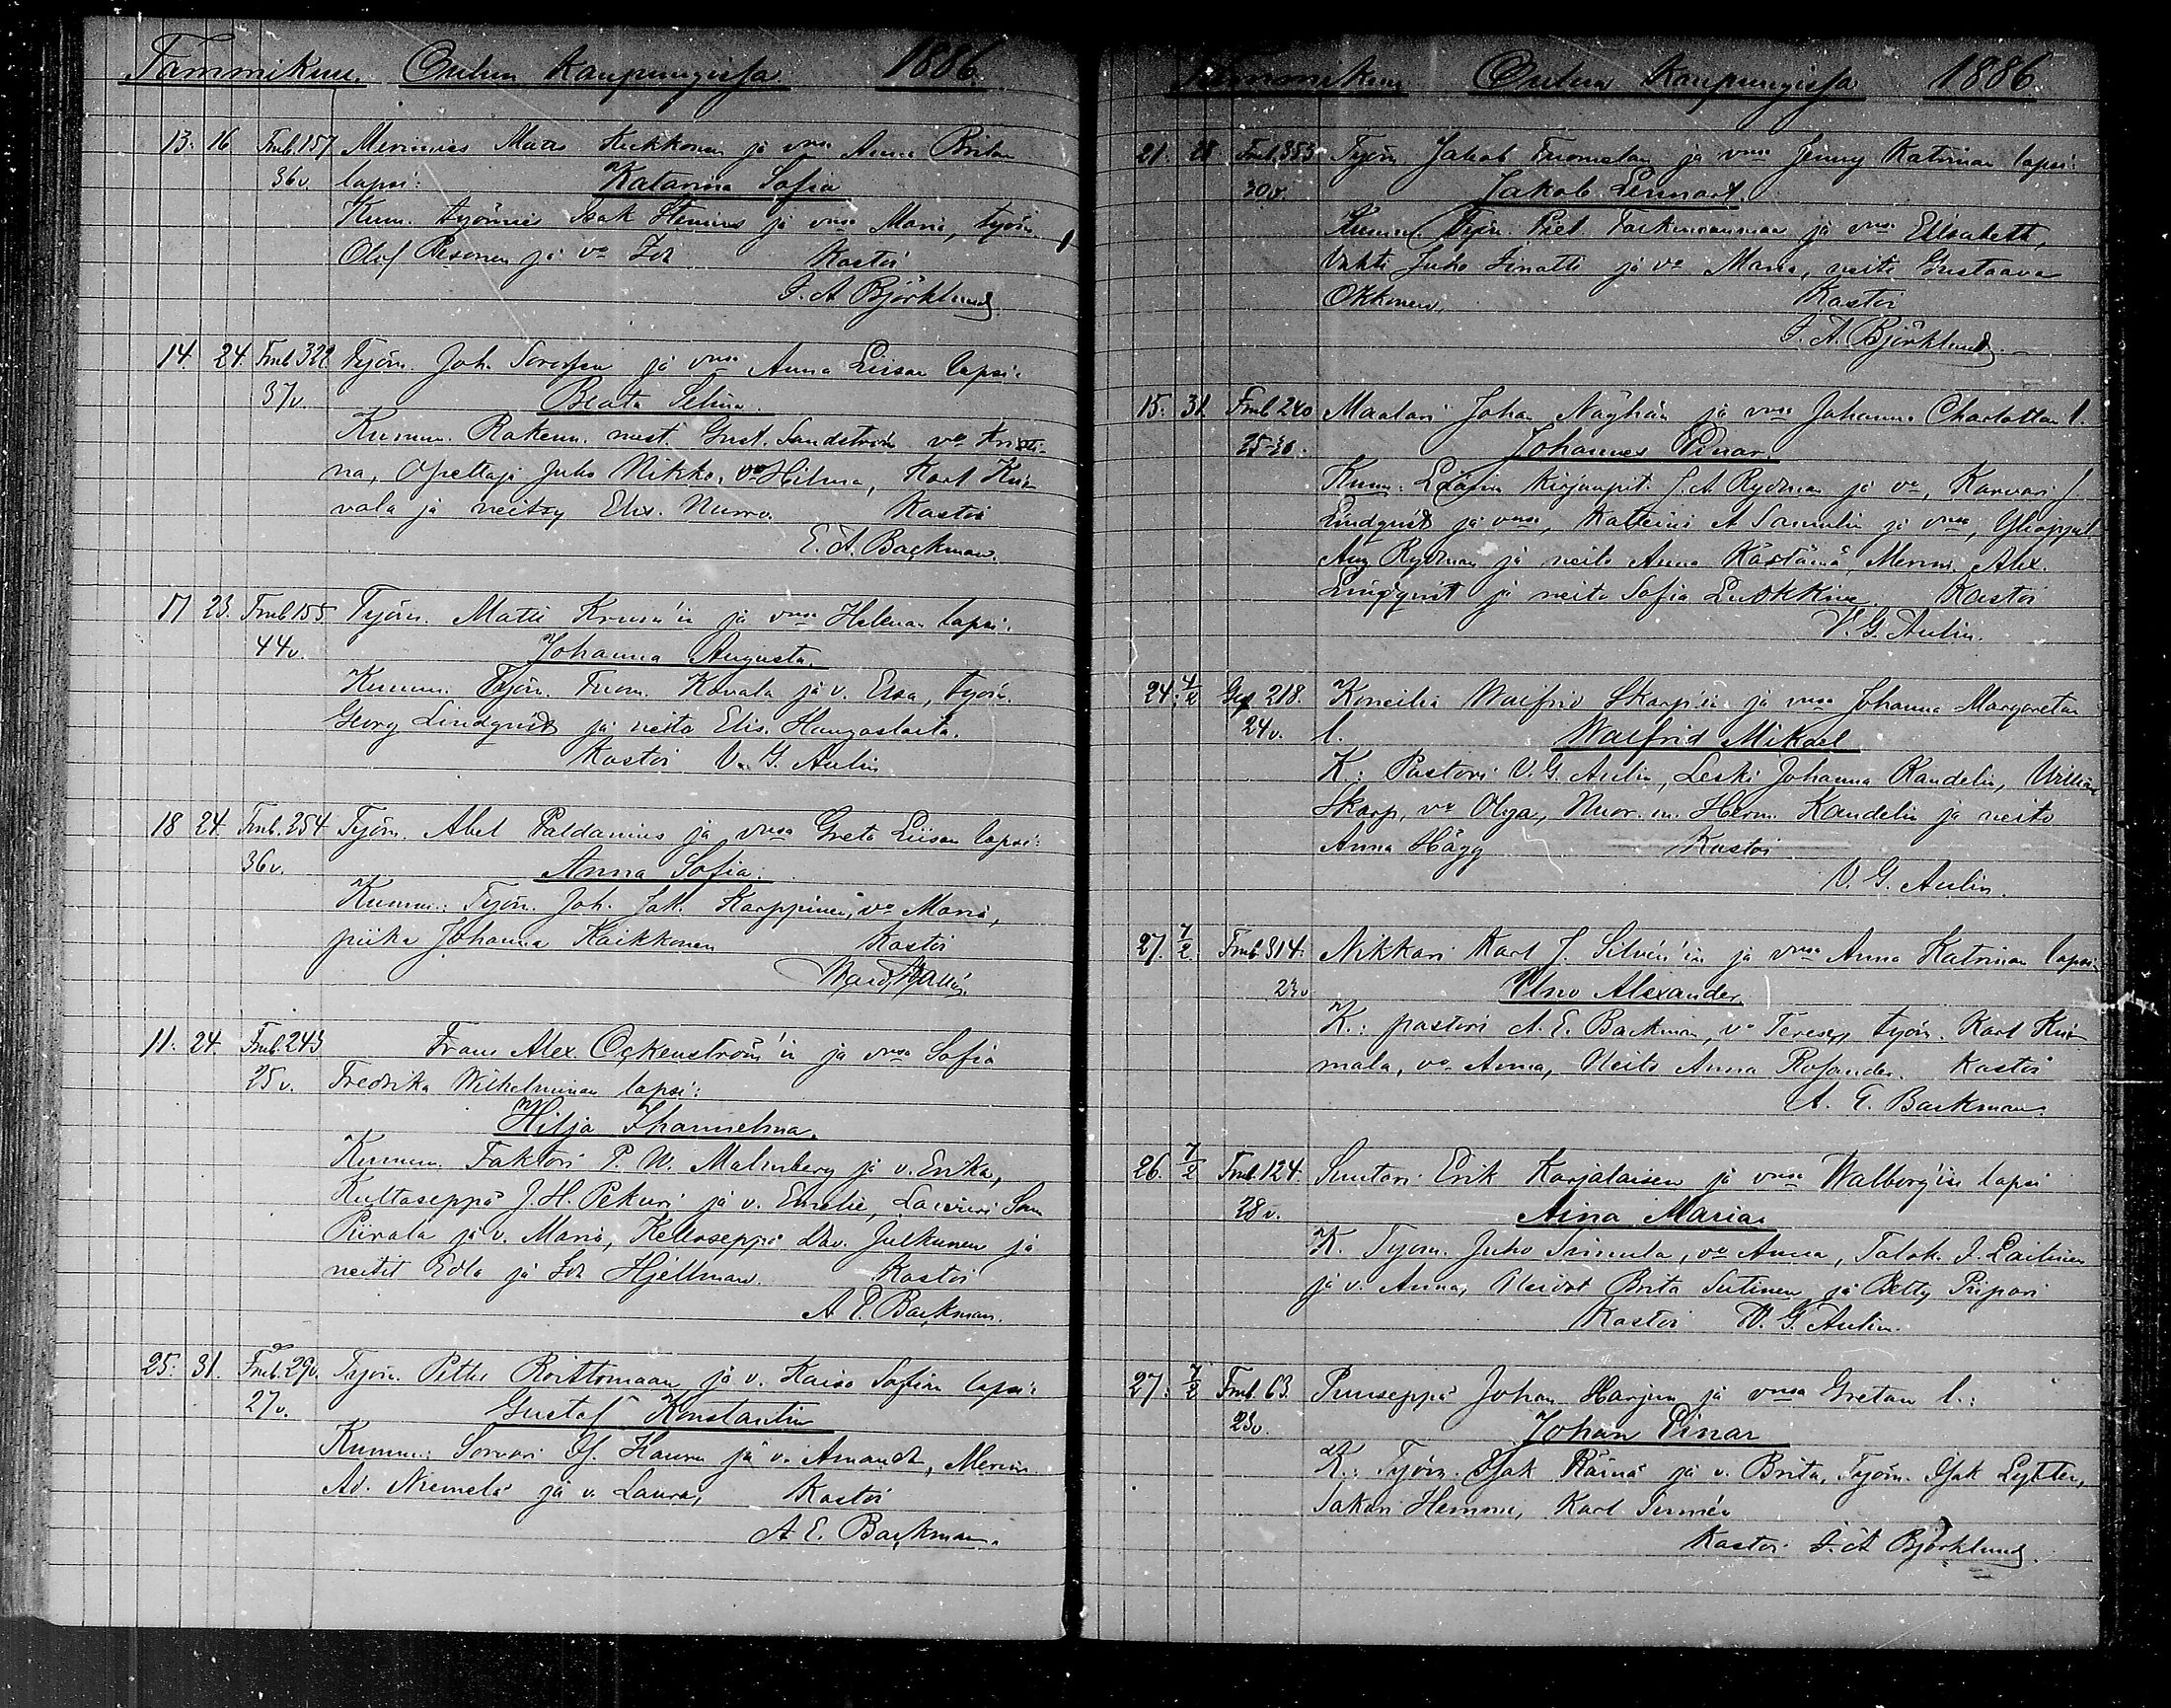 Tammikuu. Oulun Kaupungissa 1886.
13. 16. Fmb. 157 Merimies Matts Heikkonen ja vmsa Anna Britan
36v. lapsi: Katarina Sofia
Kum. työmies Isak Stenius ja vmsa Maria, työm.
Olof Pesonen ja vo Ida Kastoi
F. A. Björklund.
14. 24. Fmb 322 Työm. Joh. ja vmsa Anna Liisan lapsi:
37v. Beata Selma.
Kumm. Rakenn. mest. Gust. Sandström vo Kristi-
na, Opettaja Juho Nikko, vo Hilma, Karl
vala ja neitsy Elis. Nurro. Kastoi
E. A. Backman.
17 23. Fmb 155 Työm. Matti ja vmsa Helenan lapsi:
44v. Johanna Augusta.
Kumm. Työm. Tuom. Kovala ja v. Elsa, työm.
Georg Lindqvist ja neito Elis. Haugaslaita.
Kastoi V. G. Aulin
18 24. Fmb. 254 Työm. Abel Paldanius ja vmsa Greta Liisan lapsi:
36v. Anna Sofia.
Kumm.: Työm. Joh. Jak. Karppinen, vo Maria,
piika Johanna Kaikkonen Kastoi
11. 24. Fmb. 243 Frans Alex. Ockenström'in ja vmsa Sofia
25v. Fredrika Wilhelminan lapsi:
Hilja Ihannelma.
Kumm. Faktori P. W. Malmberg ja v. Erika,
Kultaseppä J. H. Pekuri ja v. Emelie, Sam
Piirala ja v. Maria, Kelloseppä Dav. Julkunen ja
neitit Edla ja Ida Hjellman. Kastoi
A. E. Backman.
25. 31. Fmb. 290. Työm. Petter Roittomaan ja v. Kaisa Sofian lapsi:
27v. Gustaf Konstantin
Kumm.: Sorvari If. Hauru ja v. Amanda, Merim.
Ad. Niemelä ja v. Laura, Kastoi
A. E. Backman.
Tammikuu Oulun Kaupungissa 1886.
21. 28 Fmb. 353 Työm. Jakob Tuomelan ja vmsa Jenny Katrinan lapsi:
30v. Jakob Lennart.
Kumm. Työm. Piet. ja vmsa Elisabeth,
Vahti Juho Finatti ja vo Maria, neiti Gustaava
Okkonen. Kastoi
F. A. Björklund.
15. 31. Fmb 240 Maalari Johan ja vmsa Johanna Charlottan l.
25-30. Johannes Einar.
Kumm. kirjanpit. J. A. Rydman ja vo, Karvari J.
Lindqvist ja vmsa, Katteini A Samulin ja vmsa, Ylioppil
Aug Rydman ja neito Anna Kästämä, Merim. Alex.
Lindqvist ja neito Sofia Kastoi
V. G. Aulin.
24. 4/2 218. Walfrid Skarp'in ja vmsa Johanna Margaretan
24v. l. Walfrid Mikael
K.: Pastori V. G. Aulin, Leski Johanna Kandelin, William
Skarp, vo Olga, Nuor. m. Herm. Kandelin ja neito
Anna Hägg Kastoi
V. G. Aulin.
27. 7/2. Fmb. 314. Nikkari Karl J. Silvén'in ja vmsa Anna Katrinan lapsi:
23v Uno Alexander
K.: pastori A. E. Backman, vo Terese, työm. Karl
mala, vo Anna, Neito Anna Rosander. Kastoi
A. E. Backman.
26. 7/2 Fmb. 124. Suutari Erik Karjalaisen ja vmsa Walborg'in lapsi
28v. Aina Maria
K. Työm. Juho Simula, vo Anna, Talok. J. Laitinen
ja v. Anna, Neidot Brita Sutinen ja Betty Piipari
Kastoi V. G. Aulin.
27. 7/2 Fmb. 63. Puuseppä Johan Harjun ja vmsa Gretan l.:
23v. Johan Einar
K.: Työm. Isak Räinä ja v. Brita, Työm. Isak Lytter,
Sakari Hemmi, Karl
Kastoi F. A. Björklund.